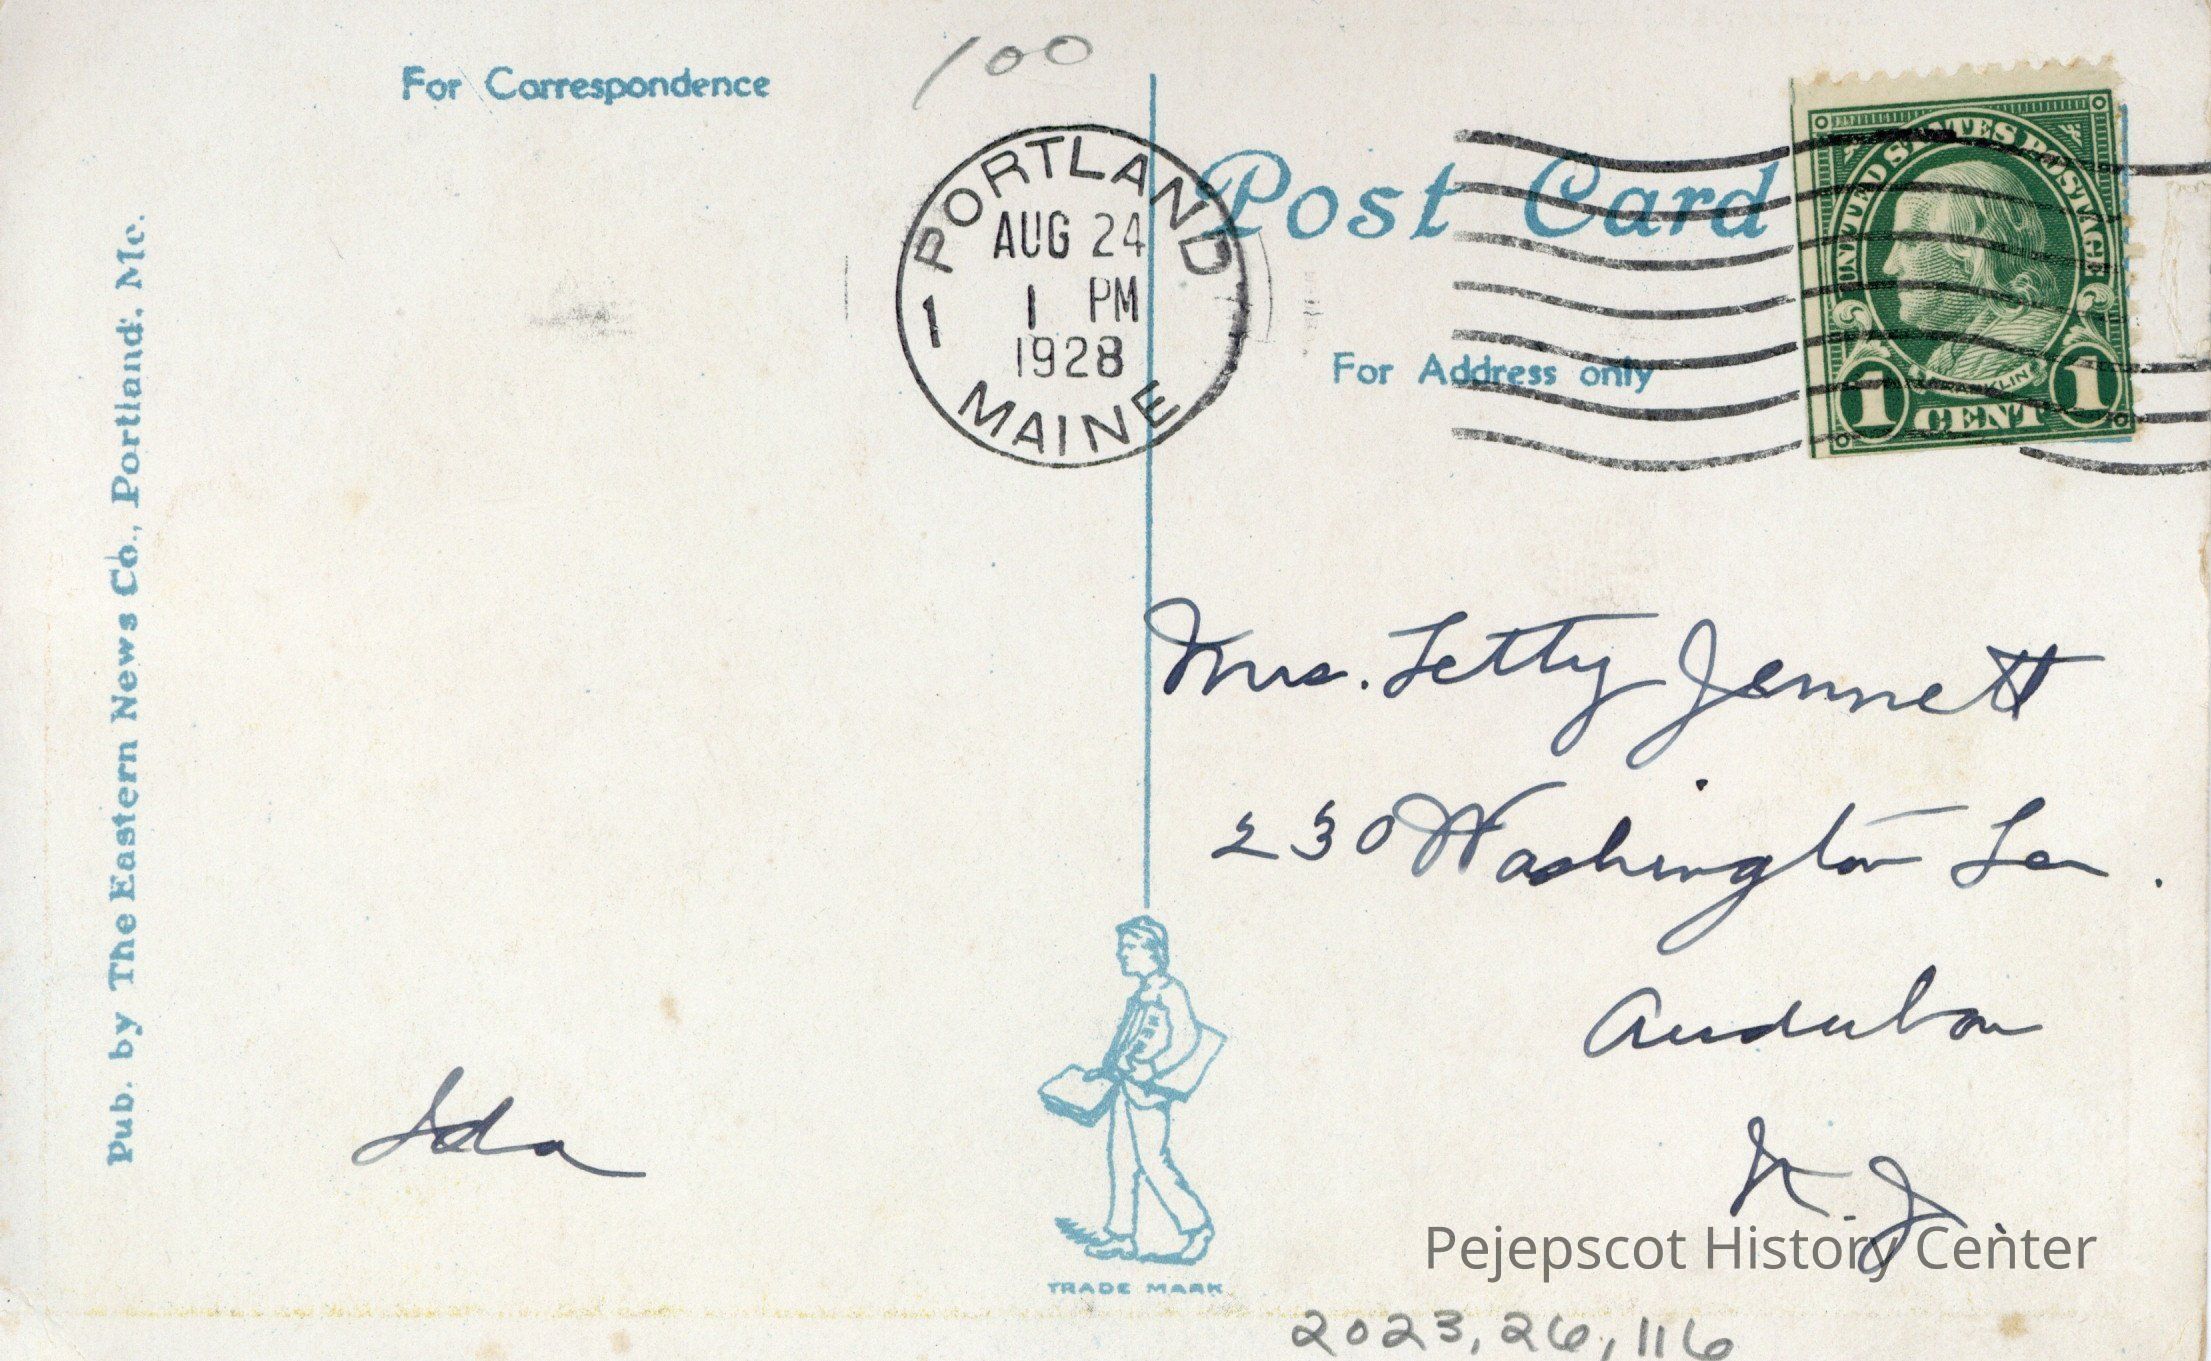 100
For Correspondence
PORTLAND
AUG 24
1 PM
1928
1
MAINE
Post Card
For Address only
UNITED STATES POSTAGE
FRANKLIN
1 CENT 1
Pub. by The Eastern News Co., Portland, Me.
Mrs. Letty Jennett
230 Washington Ter.
Audubon
N. J.
Ida
TRADE MARK
Pejepscot History Center
2023, 26, 116